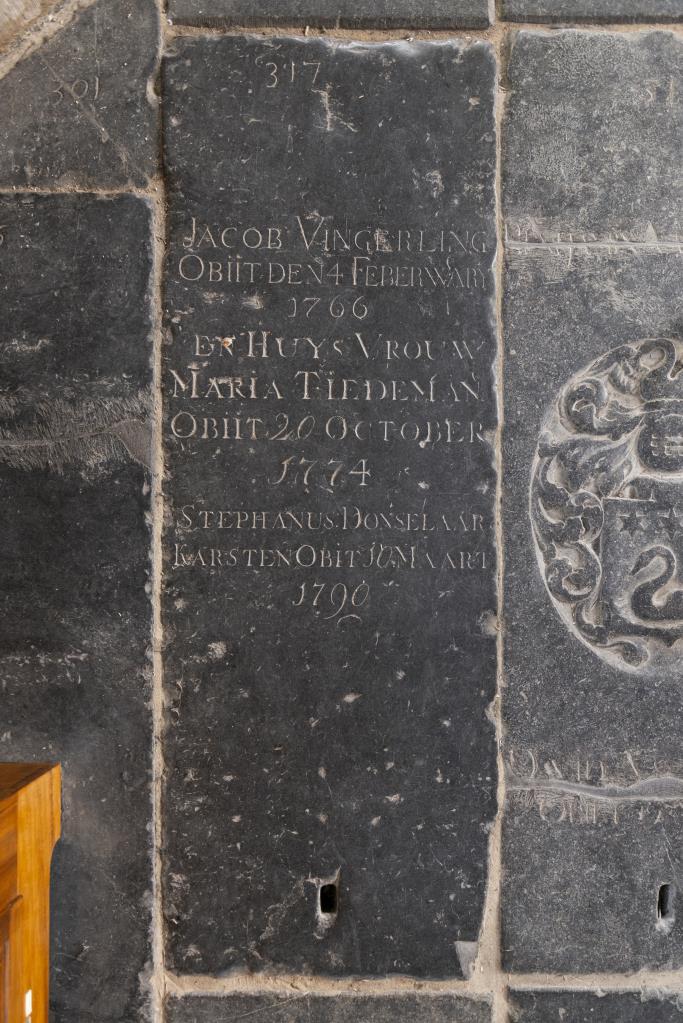 301
317
JACOB VINGERLING
OBIIT DEN 4 FEBERWARY
1766
EN HUYS VROUW
MARIA TIEDEMAN
OBIIT 20 OCTOBER
1774
STEPHANUS DONSELAAR
KARSTEN OBIT 10 MAART
1790